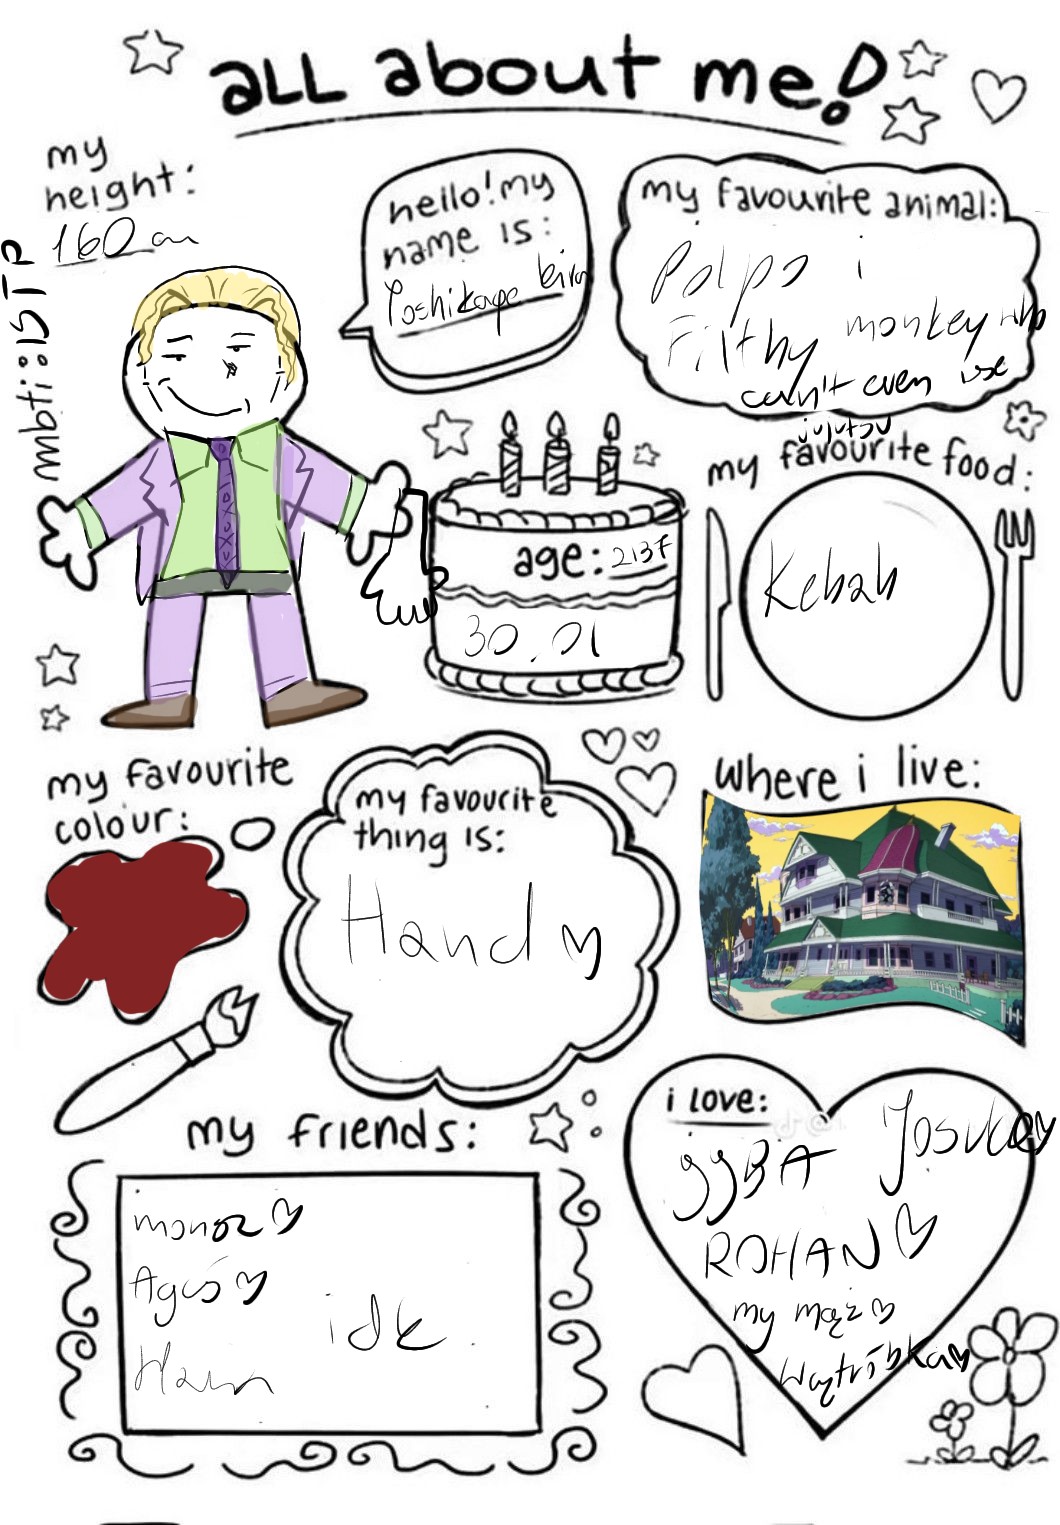 all about me!
my
height:
160 cm
mbti: ISTP
hello! my
name is:
Yoshikage kira
my favourite animal:
Polpo i
Filthy monkey who
can't even use
jujutsu
my favourite food:
Kebab
age: 2137
30.01
my favourite
colour:
my favourite
thing is:
Hand
where i live:
my friends:
monoz
Aguś
idk
i love:
Josukey
ggBA
ROHAN
my mąż
Wątróbka